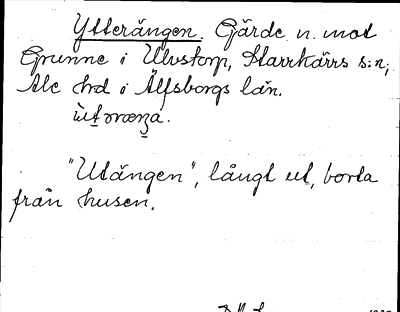 Ytterängen. Gärde n. mot
Grunne i Ulvstorp, Starrkärrs s:n,
Ale hd i Älfsborgs län.
"Utängen", långt ut, borta
från husen.